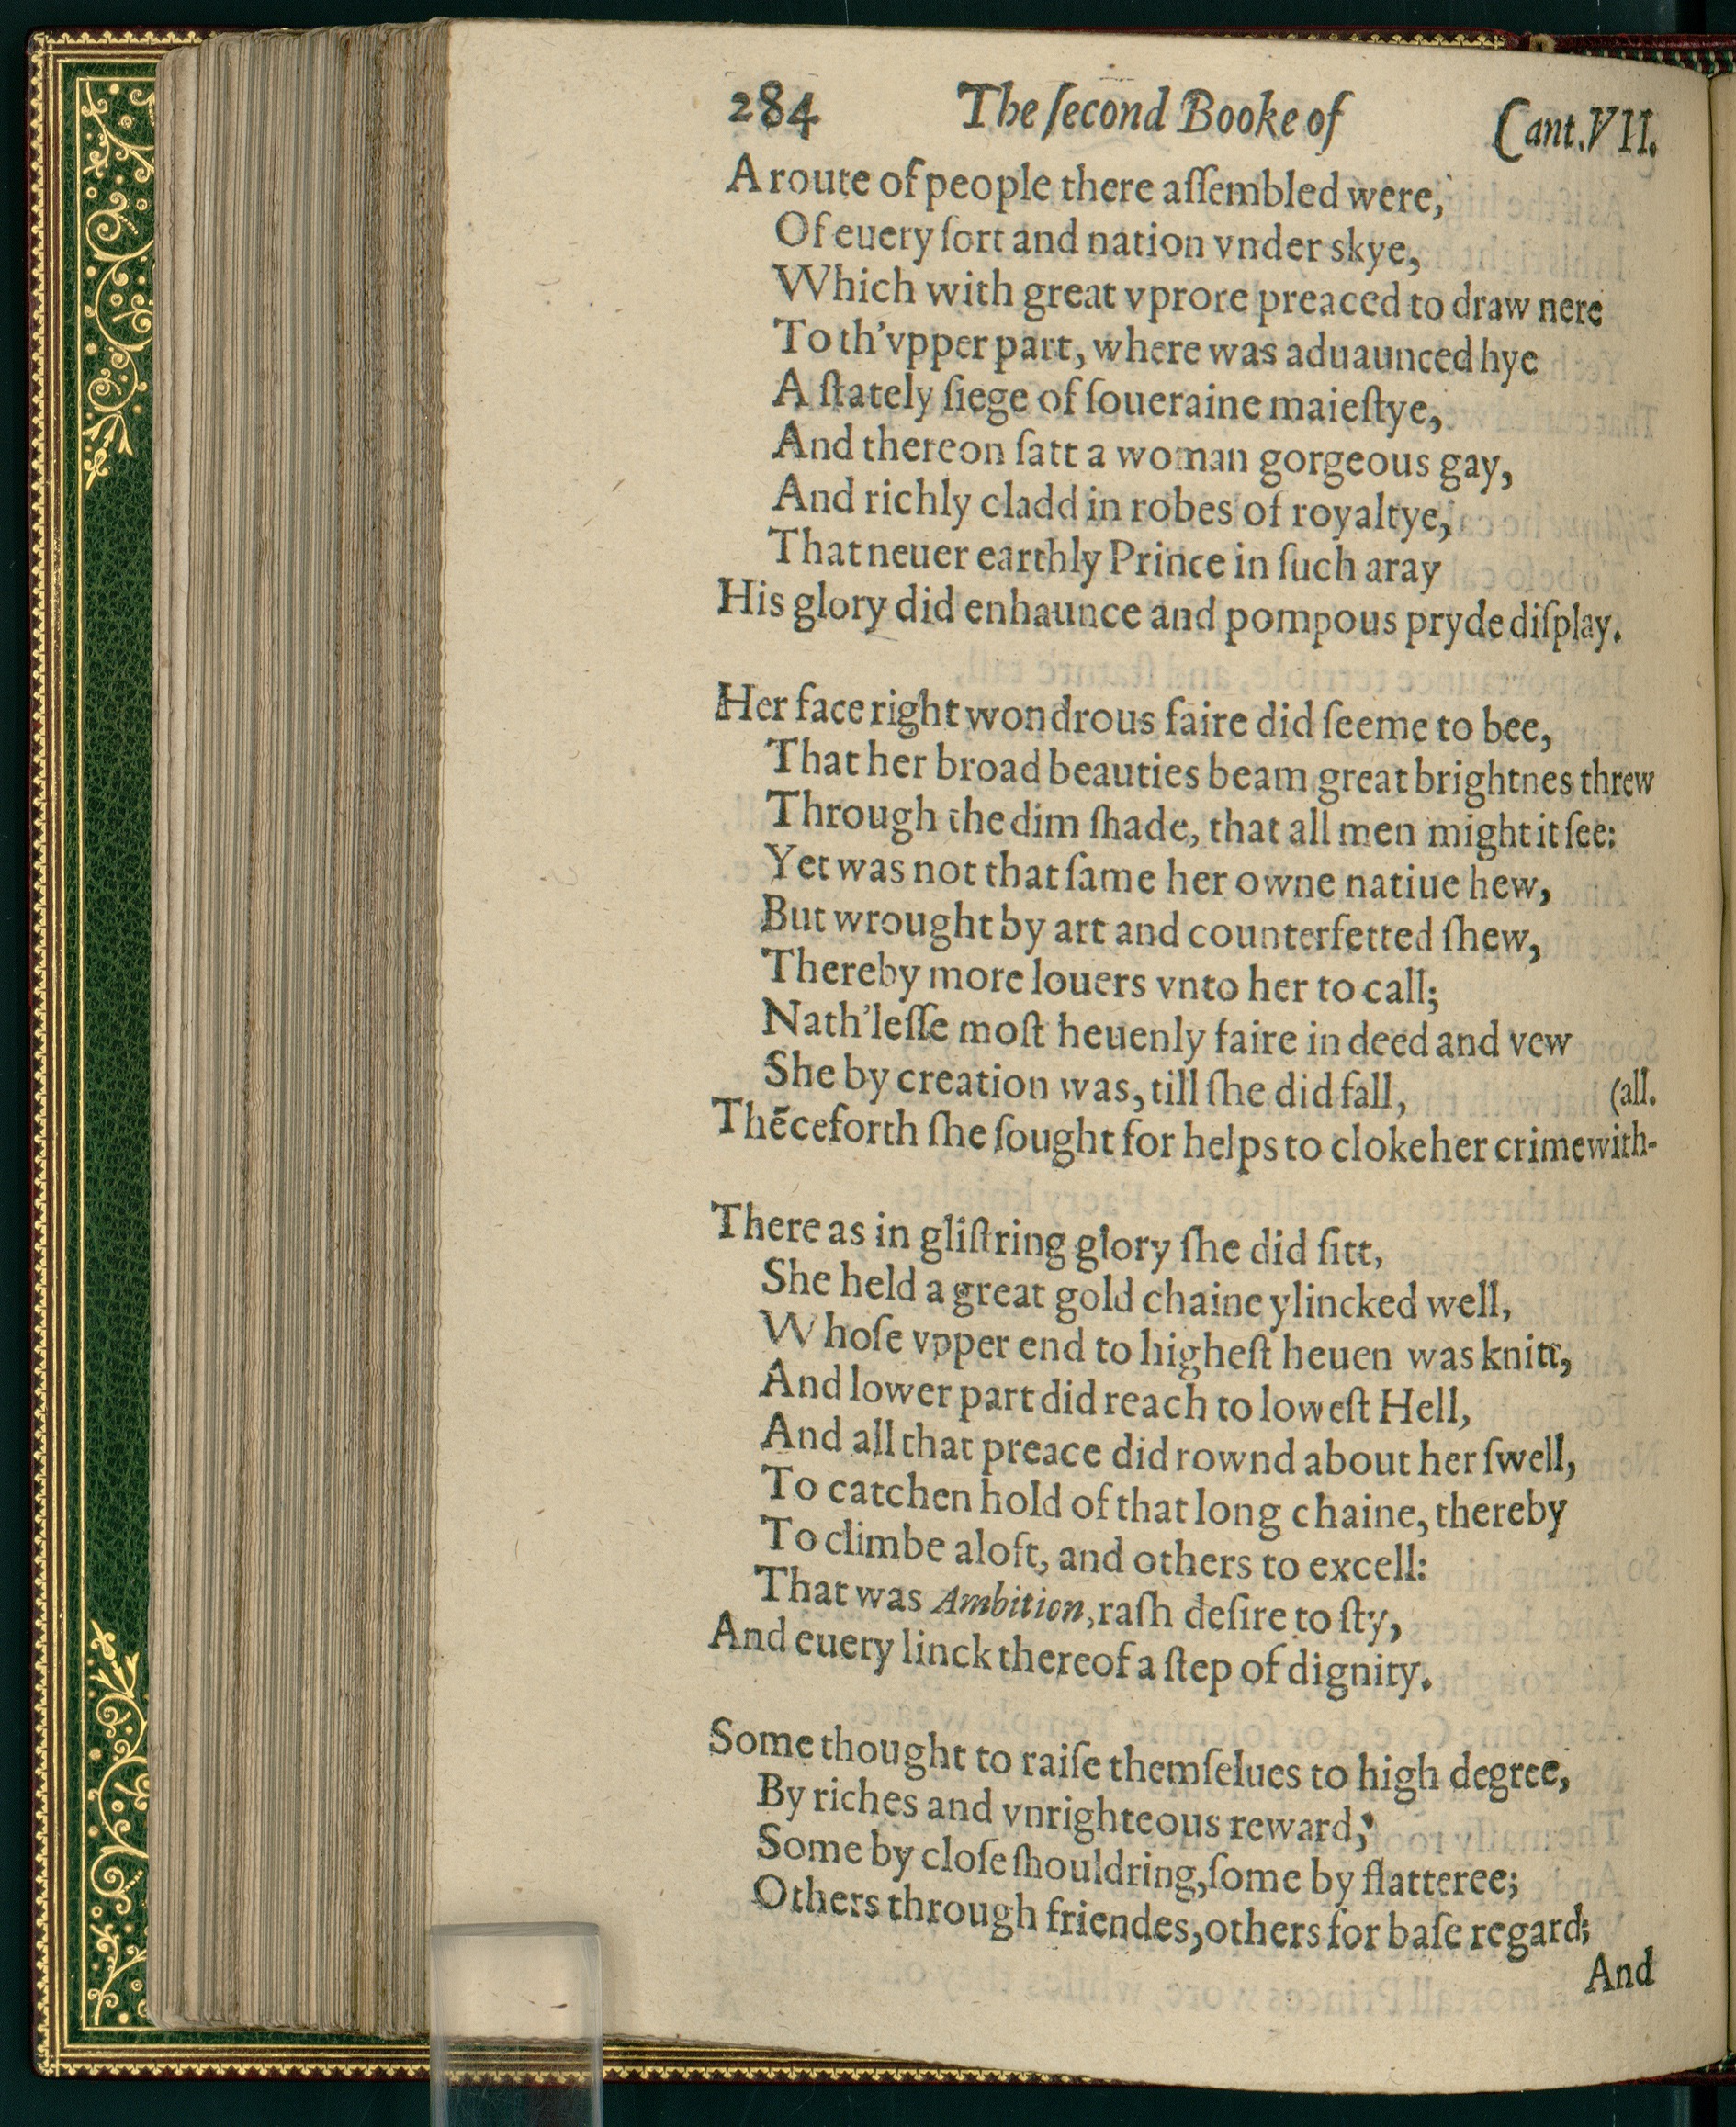 284 The ſecond Booke of Cant.VII.
A route of people there aſſembled were,
Of euery ſort and nation vnder skye,
Which with great vprore preaced to draw nere
To th'vpper part, where was aduaunced hye
A ſtately ſiege of ſoueraine maieſtye,
And thereon ſatt a woman gorgeous gay,
And richly cladd in robes of royaltye,
That neuer earthly Prince in ſuch aray
His glory did enhaunce and pompous pryde diſplay.
Her face right wondrous faire did ſeeme to bee,
That her broad beauties beam great brightnes threw
Through the dim ſhade, that all men might it ſee:
Yet was not that ſame her owne natiue hew,
But wrought by art and counterfetted ſhew,
Thereby more louers vnto her to call;
Nath'leſſe moſt heuenly faire in deed and vew
She by creation was, till ſhe did fall, (all.
Thēceforth ſhe ſought for helps to cloke her crime with-
There as in gliſtring glory ſhe did ſitt,
She held a great gold chaine ylincked well,
Whoſe vpper end to higheſt heuen was knitt,
And lower part did reach to loweſt Hell,
And all that preace did rownd about her ſwell,
To catchen hold of that long chaine, thereby
To climbe aloft, and others to excell:
That was Ambition, raſh deſire to ſty,
And euery linck thereof a ſtep of dignity.
Some thought to raiſe themſelues to high degree,
By riches and vnrighteous reward;
Some by cloſe ſhouldring, ſome by flatteree;
Others through friendes, others for baſe regard;
And